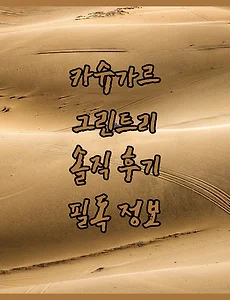 카슈가르
그린트리
솔직 후기
필독 정보